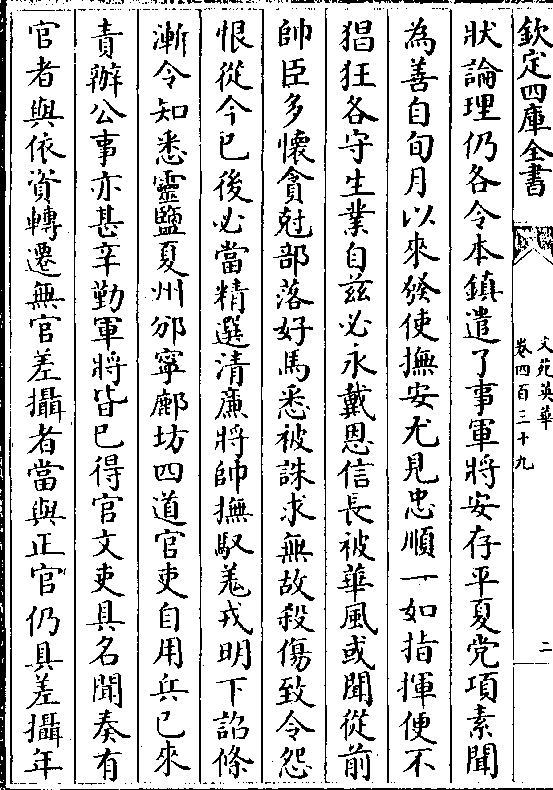 欽定四庫全書
文苑英華
卷四百三十九
二
狀論理仍各令本鎮遣了事軍將安存平夏党項素聞
為善自旬月以來發使撫安尤見忠順一如指揮便不
猖狂各守生業自兹必永戴恩信長被華風或聞從前
帥臣多懷貪尅部落好馬悉被誅求無故殺傷致令怨
恨從今已後必當精選清廉將帥撫馭羗戎明下詔條
漸令知悉靈鹽夏州邠寧鄜坊四道官吏自用兵已來
責辦公事亦甚辛勤軍將皆已得官文吏具名聞奏有
官者與依資轉遷無官差攝者當與正官仍具差攝年